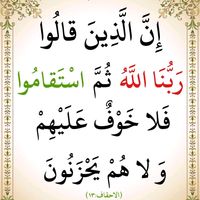 إِنَّ الَّذِينَ قَالُوا
رَبُّنَا اللَّهُ ثُمَّ اسْتَقَامُوا
فَلَا خَوْفٌ عَلَيْهِمْ
وَ لَا هُمْ يَحْزَنُونَ
(الاحقاف:١٣)